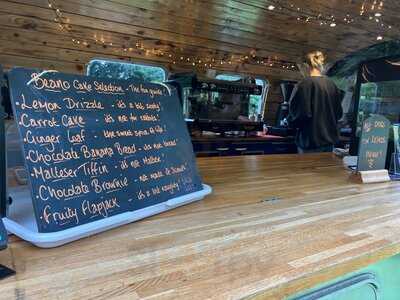 Beano Cake Selection - The fun guide!
Lemon Drizzle - it's a bit zesty!
Carrot Cake - it's not for rabbits!
Ginger Loaf - the sweet spice of life!
Chocolate Banana Bread - it's not bread!
Malteser Tiffin - it's not Maltese!
Chocolate Brownie - not made at Scouts!
Fruity Flapjack - it's a bit naughty!
DOG
Menu